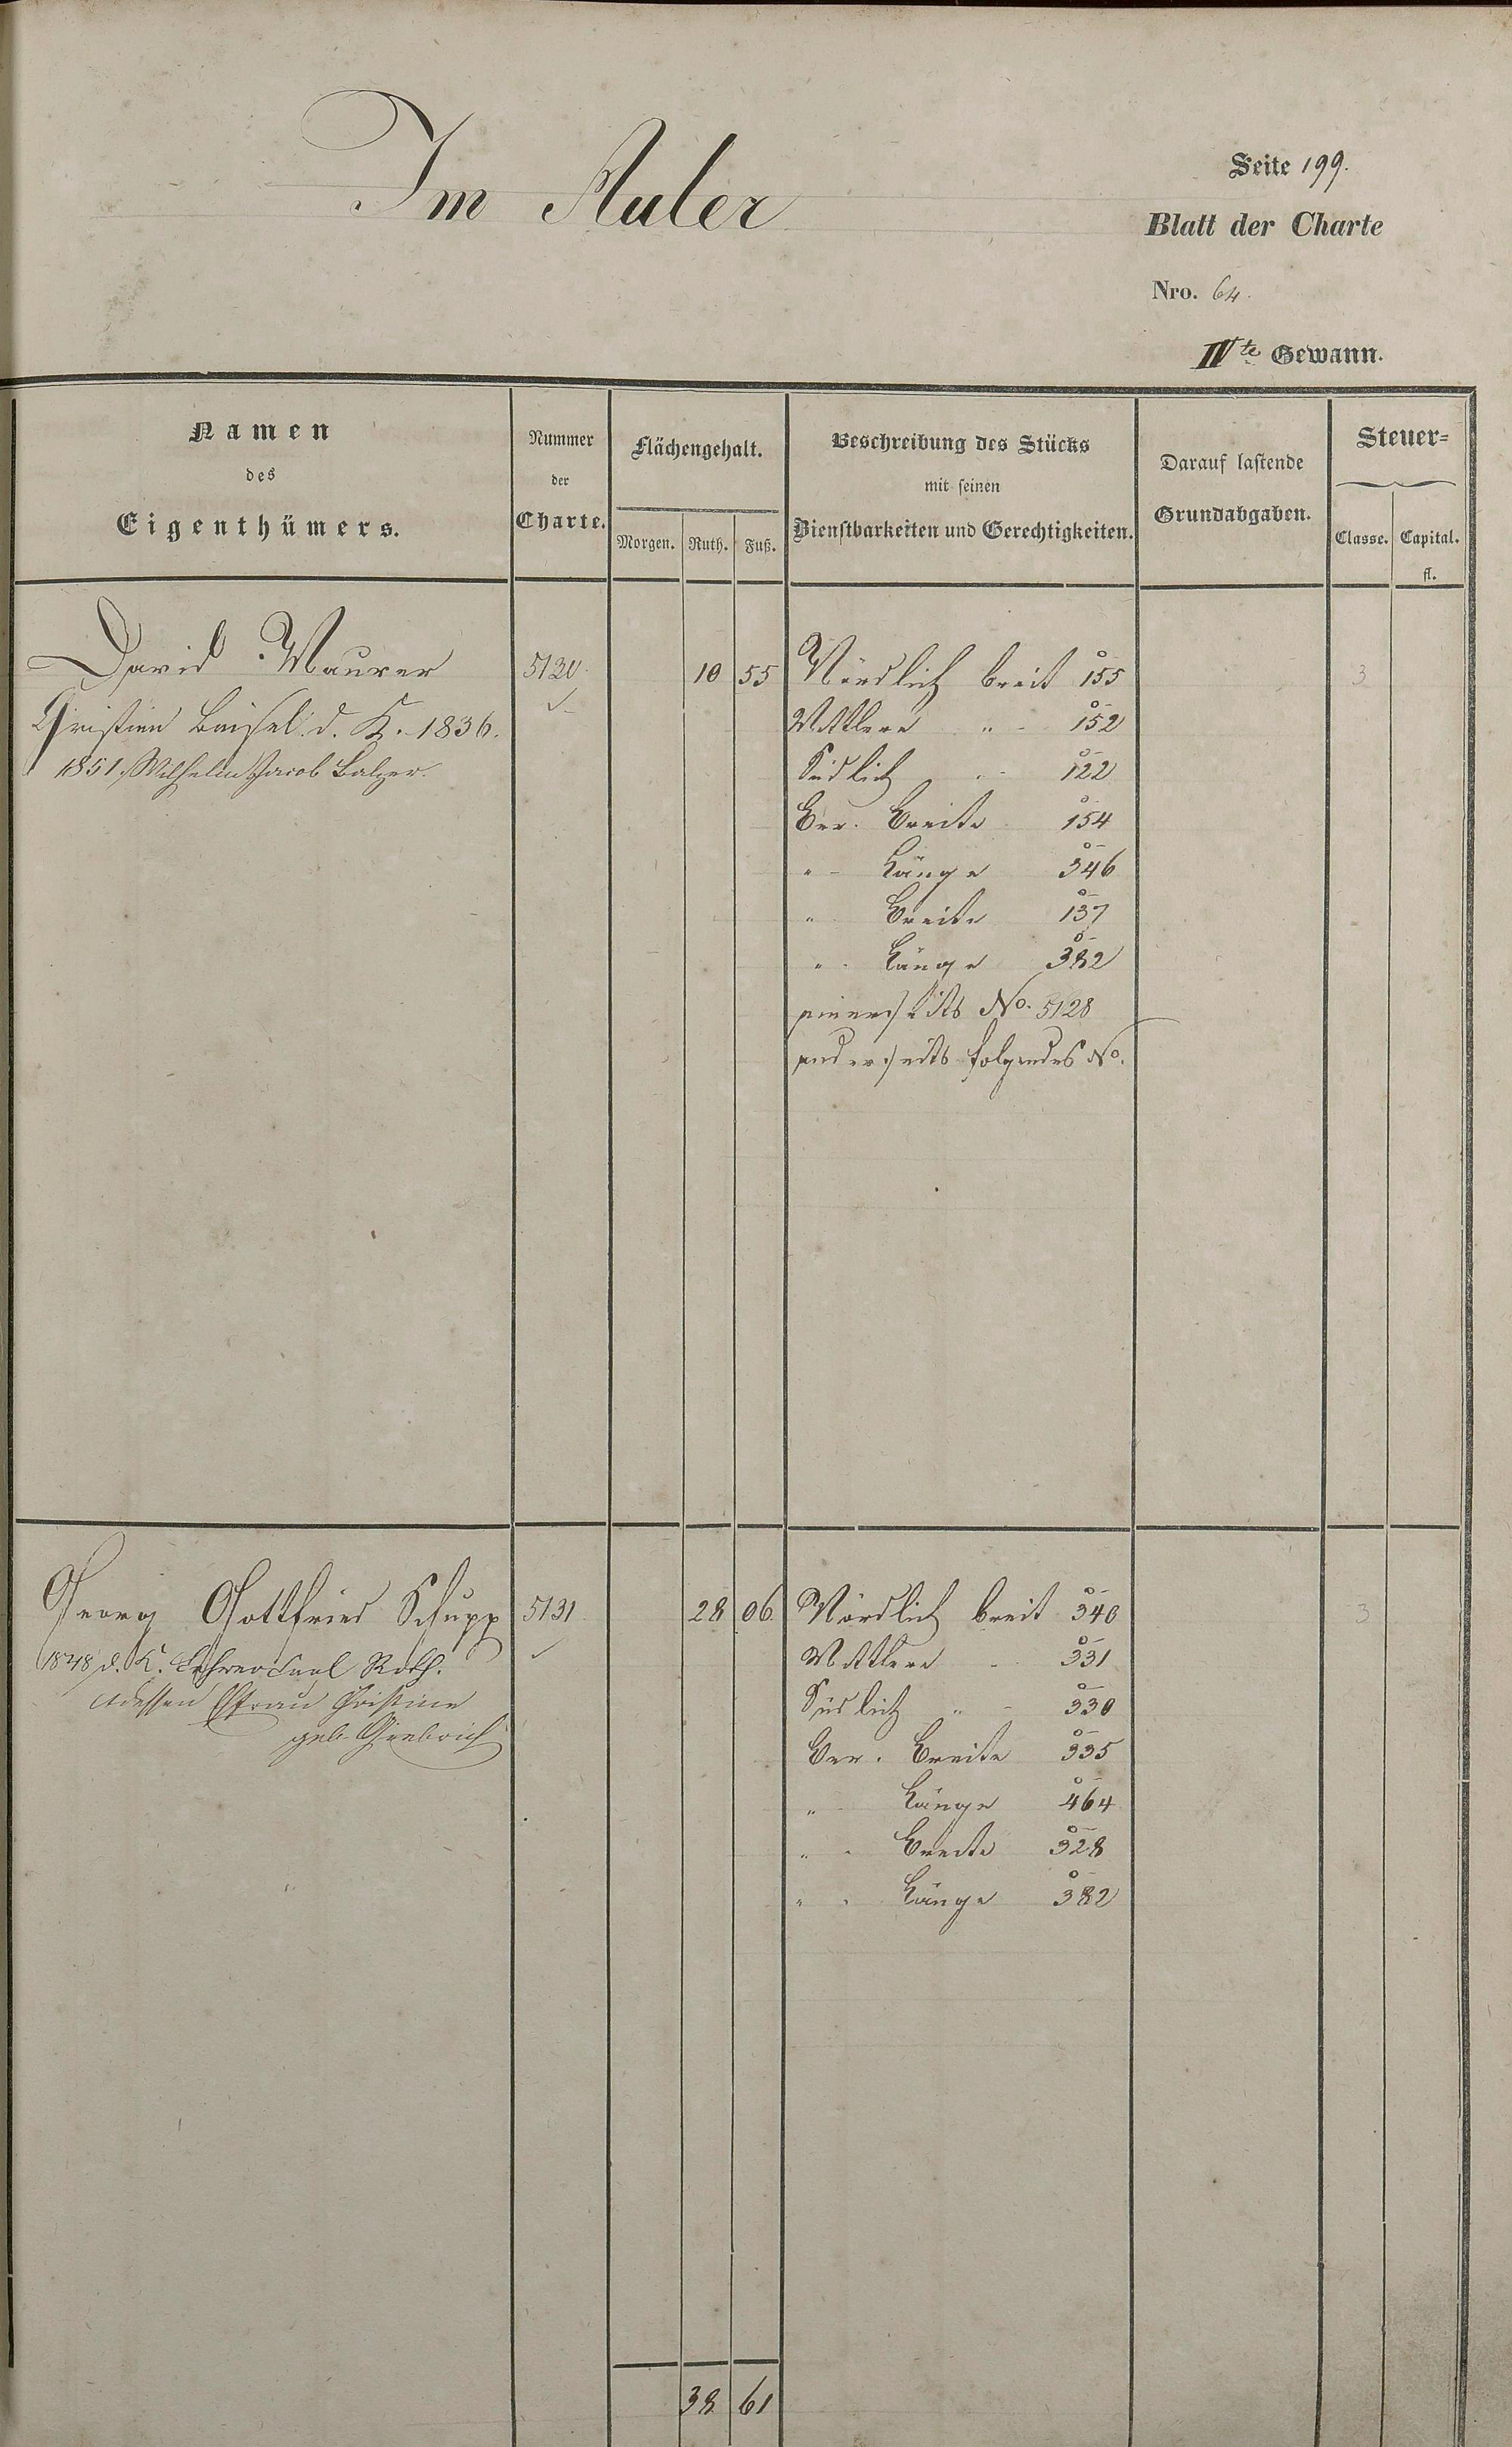 Im Auler
Seite 199.
Blatt der Charte
Nro. 64.
IVte Gewann.
Namen
des
Eigenthümers.
Nummer
der
Charte.
Flächengehalt.
Morgen. Ruth. Fuß.
Beschreibung des Stücks
mit seinen
Dienstbarkeiten und Gerechtigkeiten.
Darauf lastende
Grundabgaben.
Steuer-
Classe. Capital.
fl.
David Maurer 10 55 Nördlich breit 155 3
d. K. 1836. Mittlere " 152
1851. Wilhelm Jacob Balzer. Südlich " 122
Ber. Breite 154
" Länge 346
" Breite 137
" Länge 382
einerseits No. 5128
anderseits folgendes No.
Georg Gottfried Schupp 5131 28 06 Nördlich breit 340 3
1848 d. K. Lehrer Carl Roth. Mittlere " 331
dessen Efrau Christine Südlich " 330
geb. Ber. Breite 335
" Länge 464
" Breite 328
" Länge 382
38 61